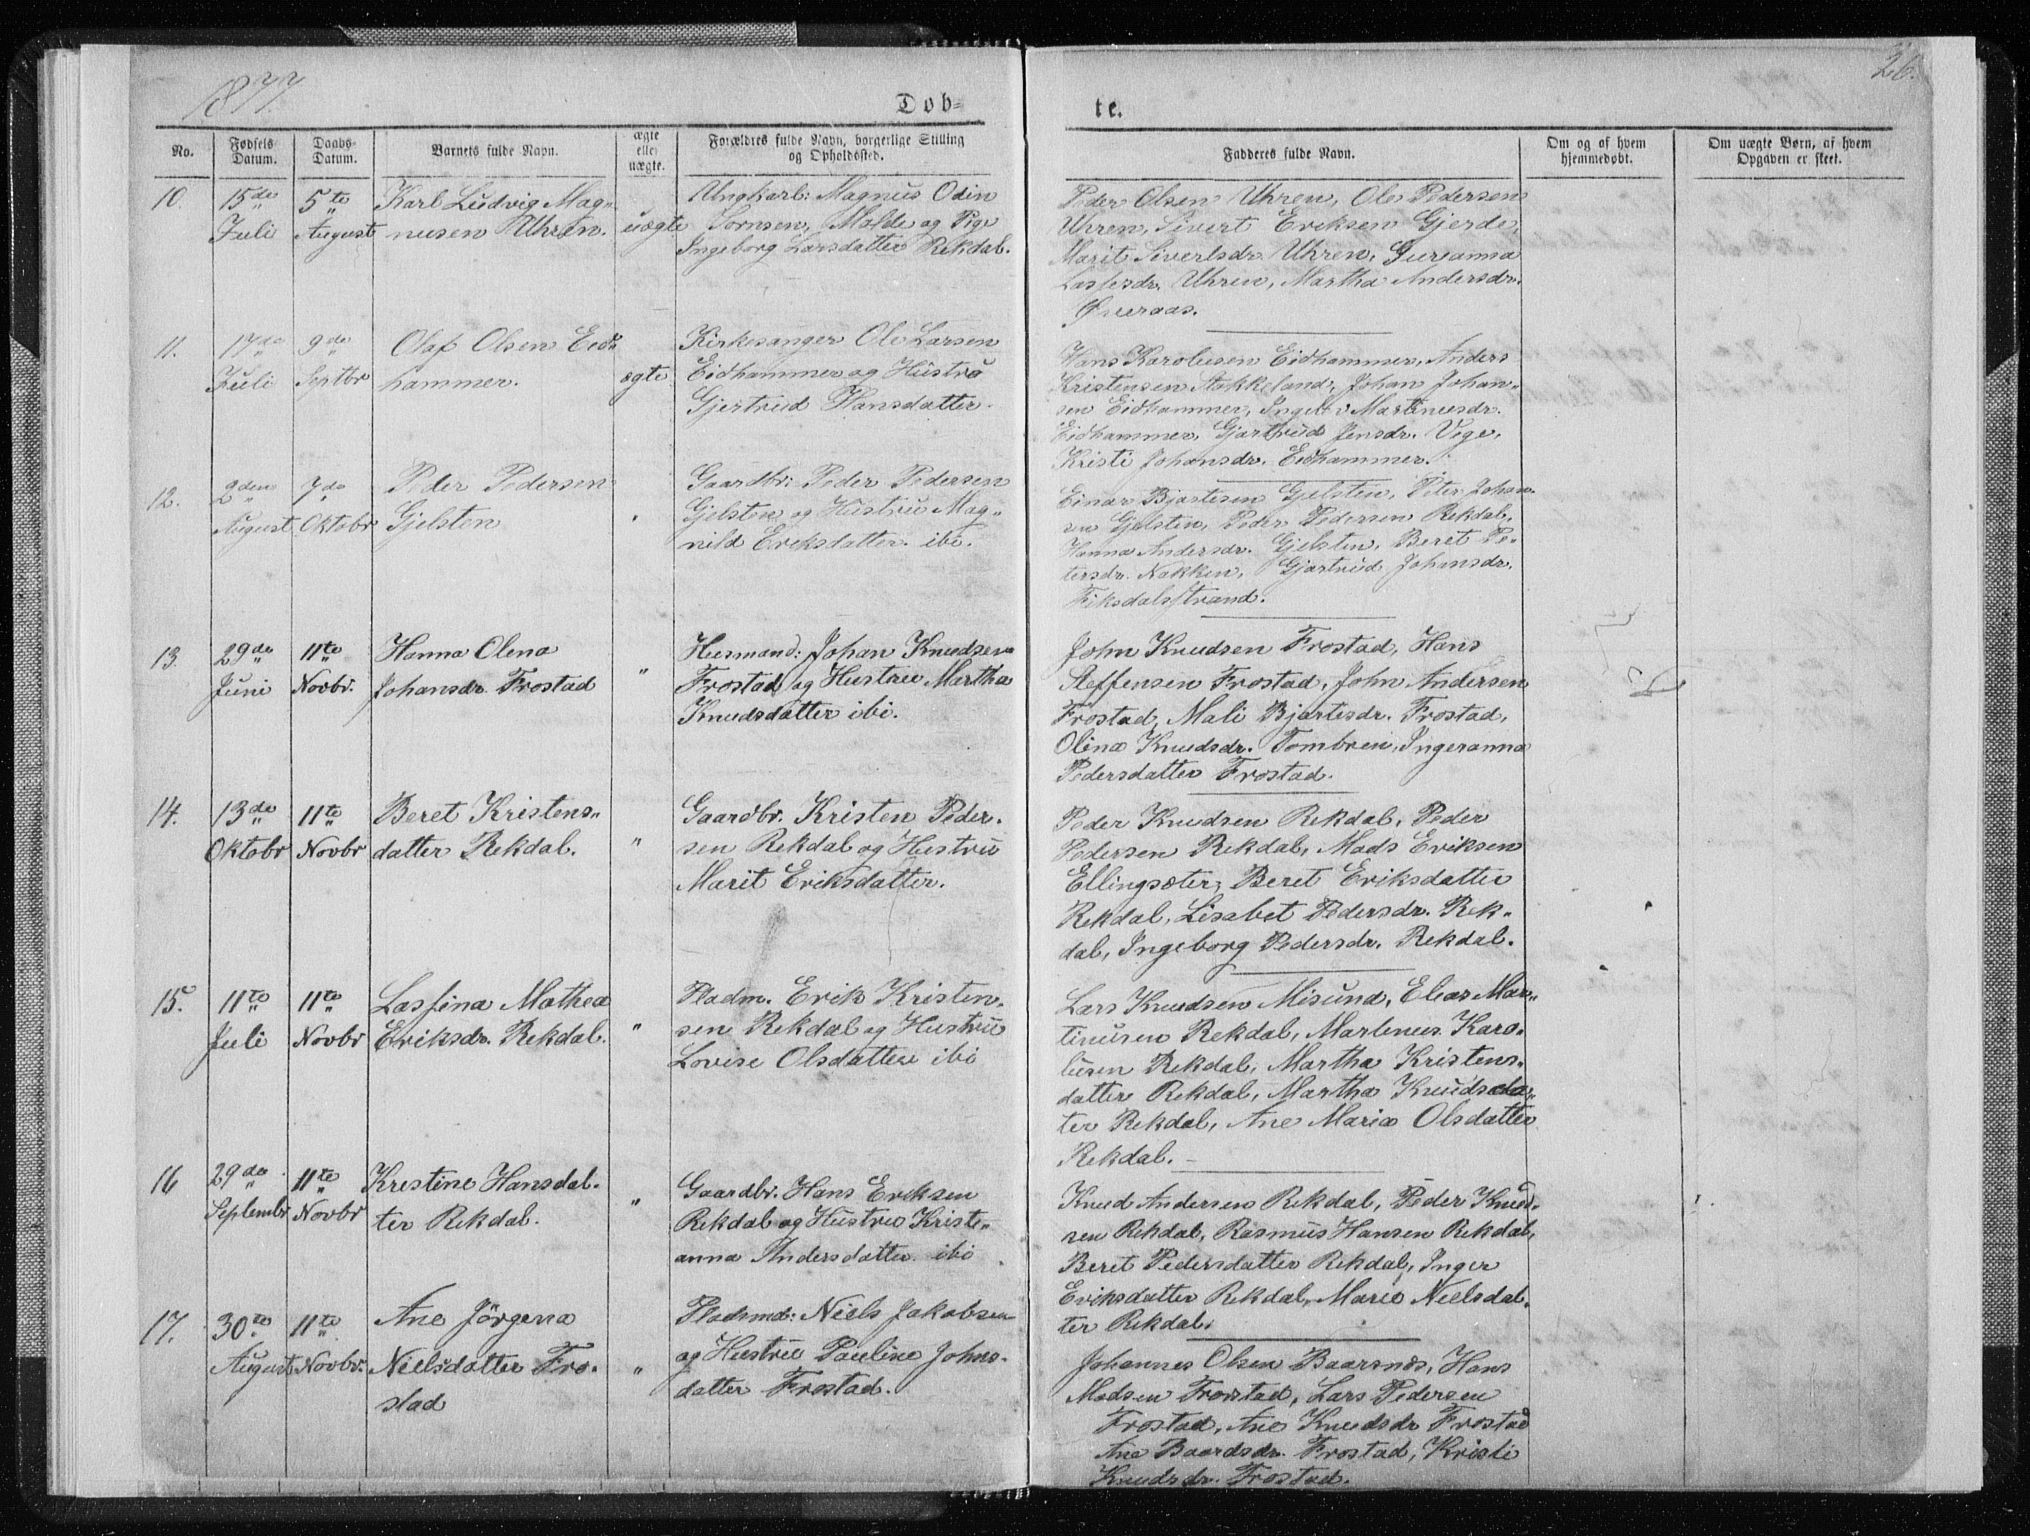 1877.
26.
Døb-
te.
No.
Fødsels Datum.
Daabs-Datum.
Barnets fulde Navn.
ægte eller uægte.
Forældres fulde Navn, borgerlige Stilling og Opholdssted.
Fadderes fulde Navn.
Om og af hvem hjemmedøbt.
Om uægte Børn, af hvem Opgaven er skeet.
10.
15de
Juli
5te
August
Karl Ludvig Mag-
nusen Uhren.
uægte
Ungkarl: Magnus Odin
Jornsen, Molde og Pige
Ingeborg Larsdatter Rekdal.
Peder Olsen Uhren, Ole Pedersen
Uhren, Sivert Eriksen Gjerde,
Marit Sivertsdr. Uhren, Gurianna
Lassesdr. Uhren, Martha Andersdr.
Øveraas.
11.
17de
Juli
9de
Septbr
Olaf Olsen Eid-
hammer.
ægte
Kirkesanger Ole Larsen
Eidhammer og Hustru
Gjertrud Hansdatter.
Hans Karolusen Eidhammer, Anders
Kristensen Stokkeland, Johan Johan-
sen Eidhammer, Martinusdr.
Eidhammer, Gjartrud Jensdr. Vege,
Kristi Johansdr. Eidhammer.
12.
2den
August
7de
Oktobr
Peder Pedersen
Gjelsten
Gaardbr: Peder Pedersen
Gjelsten og Hustru Mag-
nild Eriksdatter ibi.
Einar Bjartesen Gjelsten, Peter Johan-
sen Gjelsten, Peder Pedersen Rekdal,
Hanna Andersdr. Gjelsten, Beret Pe-
tersdr. Nakken, Gjartrud Johansdr.
Fiksdalsstrand.
13.
29de
Juni
11te
Novbr.
Hanna Olena
Johansdr. Frostad
"
Husmand: Johan Knudsen
Frostad og Hustru Martha
Knudsdatter ibi.
John Knudsen Frostad, Hans
Steffensen Frostad, John Andersen
Frostad, Mali Bjartesdr. Frostad,
Olina Knudsdr. Tombren, Ingeranna
Pedersdatter Frostad.
14.
13de
Oktobr
11te
Novbr
Beret Kristens-
datter Rekdal.
"
Gaardbr. Kristen Peder-
sen Rekdal og Hustru
Marit Eriksdatter.
Peder Knudsen Rekdal, Peder
Pedersen Rekdal, Mads Eriksen
Ellingsæter, Beret Eriksdatter
Rekdal, Lisabet Pedersdr. Rek-
dal, Ingeborg Pedersdr. Rekdal.
15.
11te
Juli
11te
Novbr
Lassina Mathea
Eriksdr. Rekdal.
"
Pladm. Erik Kristen-
sen Rekdal og Hustru
Lovise Olsdatter ibi
Lars Knudsen Misund, Elias Mar-
tinusen Rekdal, Martinus Karo-
lusen Rekdal, Martha Kristens-
datter Rekdal, Martha Knudsdat-
ter Rekdal, Ane Maria Olsdatter
Rekdal.
16
29de
Septembr
11te
Novbr
Kristine Hansdat-
ter Rekdal.
"
Gaardbr. Hans Eriksen
Rekdal og Hustru Kristi-
anna Andersdatter ibi
Knud Andersen Rekdal, Peder Knud-
sen Rekdal, Rasmus Hansen Rekdal,
Beret Pedersdatter Rekdal, Inger
Eriksdatter Rekdal, Marie Nielsdat-
ter Rekdal.
17.
30te
August
11te
Novbr.
Ane Jörgena
Nielsdatter Fro-
stad
"
Pladsmd: Niels Jakobsen
og Hustru Pauline Johns-
datter Frostad.
Johannes Olsen Baarsnæs, Hans
Madsen Frostad, Lars Pedersen
Frostad, Ane Knudsdr Frostad
Ane Baardsdr. Frostad, Kristi
Knudsdr. Frostad.